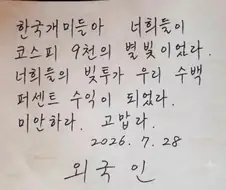 한국개미들아 너희들이
코스피 9천의 별빛이었다.
너희들의 빚투가 우리 수백
퍼센트 수익이 되었다.
미안하라. 고맙다.
2026. 7. 28
외국인